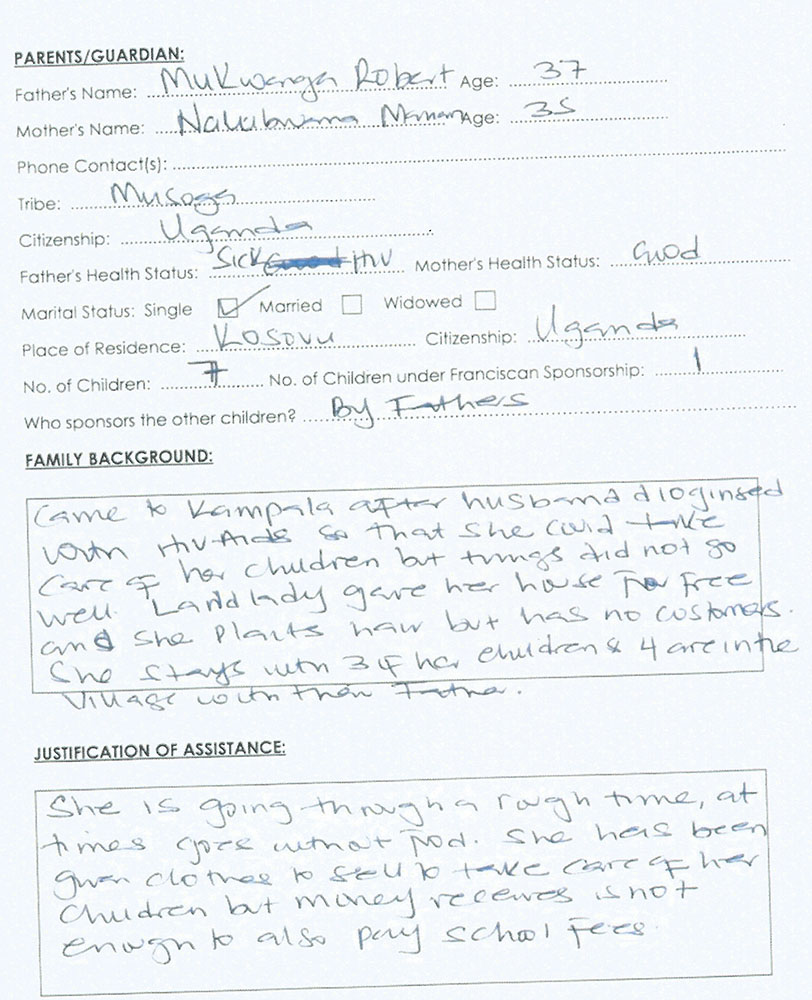 PARENTS/GUARDIAN:
Father's Name: Mukwanga Robert Age: 37
Mother's Name: Age: 35
Phone Contact(s):
Tribe: Musoga
Citizenship: Uganda
Father's Health Status: Sick Good HIV Mother's Health Status: Good
Marital Status: Single Married Widowed
Place of Residence: Kosovu Citizenship: Uganda
No. of Children: 7 No. of Children under Franciscan Sponsorship: 1
Who sponsors the other children? By Fathers
FAMILY BACKGROUND:
Came to Kampala after husband dioginsed
with HIV-Aids so that she could take
care of her children but things did not go
well. Landlady gave her house for free
and she plaits hair but has no customers.
She stays with 3 of her children & 4 are in the
village with their Father.
JUSTIFICATION OF ASSISTANCE:
She is going through a rough time, at
times goes without food. She has been
given clothes to sell to take care of her
children but money receives is not
enough to also pay school fees.